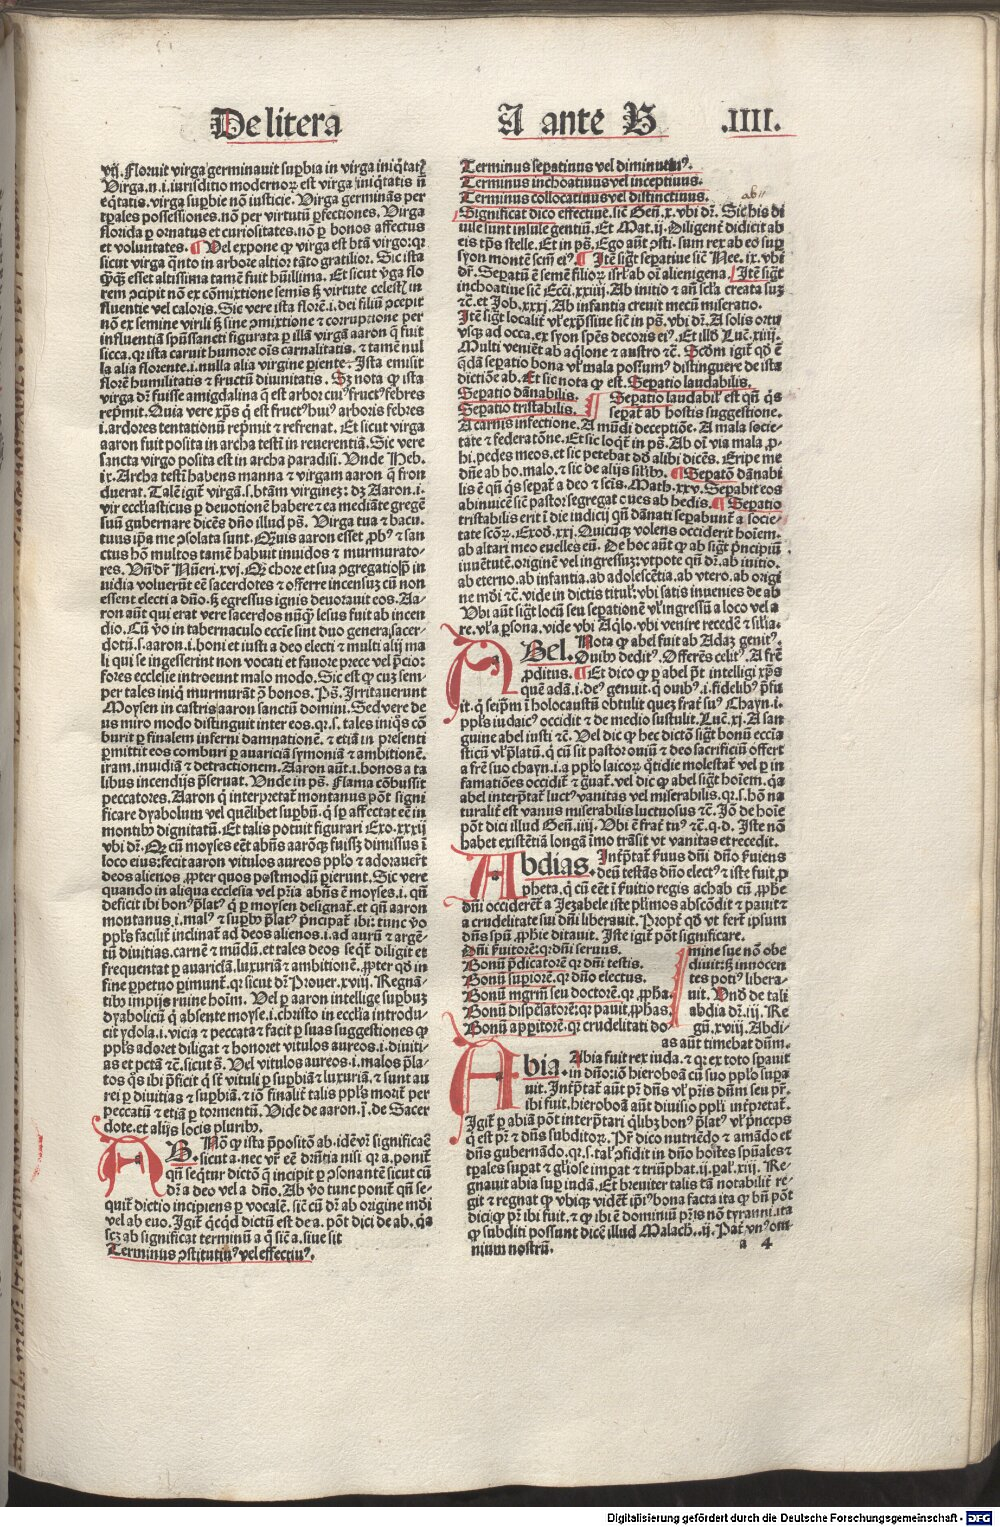 De litera A ante B .IIII.
vij. Floruit virga germinauit suꝑbia in virga iniq̃tatꝭ
Virga.n.i.iurisditio modernoꝝ est virga iniq̃tatis ñ
eq̃tatis.virga suꝑbie nõ iusticie. Virga germinãs per
tꝑales possessiones.nõ per virtutũ ꝑfectiones. Virga
florida ꝑ ornatus et curiositates.nõ ꝑ bonos affectus
et voluntates. ¶ Uel expone ꝙ virga est btã virgo:qꝛ
sicut virga q̃nto in arbore altior tãto gratilior. Sic ista
esset altissima tamẽ fuit hũillima. Et sicut v̾ga flo
rem ꝯcipit nõ ex cõmixtione semis sꝫ virtute celestꝭ in
fluentie vel caloris. Sic vere ista florẽ.i.dei filiũ ꝯcepit
nõ ex semine virili sꝫ sine ꝑmixtione ⁊ corruptione per
influentiã spũssancti figurata ꝑ illã virgã aaron q̃ fuit
sicca.qꝛ ista caruit humore oĩs carnalitatis. ⁊ tamẽ nul
la alia florente.i.nulla alia virgine pariente. Ista emisit
florẽ humilitatis ⁊ fructũ diuinitatis. Sꝫ nota ꝙ ista
virga dr̃ fuisse amigdalina q̃ est arbor cuiꝰ fructꝰ febres
rep̃mit. Quia vere xp̃s q̃ est fructꝰ huiꝰ arboris febres
i.ardores tentationũ rep̃mit ⁊ refrenat. Et sicut virga
aaron fuit posita in archa testĩ in reuerentiã. Sic vere
sancta virgo posita est in archa paradisi. Unde Heb.
ix. Archa testĩ habens manna ⁊ virgam aaron q̃ fron
duerat. Talẽ igit̃ virgã.s.btãm virginez: dꝫ Aaron.i.
vir ecclesiasticus ꝑ deuotionẽ habere ⁊ ea mediãte gregẽ
suũ gubernare dicẽs dño illud ps̃. Virga tua ⁊ bacu.
tuus ip̃a me ꝯsolata sunt. Quis aaron esset ꝓphꝰ ⁊ san
ctus hõ multos tamẽ habuit inuidos ⁊ murmurato-
res. Vñ dr̃ Nũeri.xvj. Chore et sua ꝯgregatio in
uidia voluerũt eẽ sacerdotes ⁊ offerre incensuz cũ non
essent electi a dño.sꝫ egressus ignis deuorauit eos. Aa-
ron aũt qui erat vere sacerdos nũq̃ lesus fuit ab incen
dio. Cũ v̾o in tabernaculo eccẽie sint duo genera sacer-
dotũ.s.aaron.i.boni et iusti a deo electi ⁊ multi alij ma
li qui se ingesserint non vocati et fauore prece vel p̃cio:
fores ecclesie introeunt malo modo. Sic est ꝙ cuz sem-
per tales iniq̃ murmurãt ꝯ̃ bonos. Ps̃. Irritauerunt
Moysen in castris aaron sanctũ domini. Sed vere de
us miro modo distinguit inter eos.qꝛ.s.tales iniq̃s cõ
burit ꝑ finalem inferni damnationẽ. ⁊ etiã in presenti
ꝑmittit eos comburi ꝑ auariciã symoniã ⁊ ambitionẽ.
iram.inuidiã ⁊ detractionem. Aaron aũt.i.bonos a ta
libus incendijs p̃seruat. Unde in ps̃. Flama cõbussit
peccatores. Aaron q̃ interpretat̃ montanus põt signi
ficare dyabolum vel quẽlibet suꝑbũ.q̃ sꝑ affectat eẽ in
montibꝰ dignitatũ. Et talis potuit figurari Exo.xxxij
vbi dr̃. cũ moyses eẽt abñs aarõq̃ fuissꝫ dimissus ĩ
loco eius:fecit aaron vitulos aureos pplo ⁊ adorauerũt
deos alienos.ꝓpter quos postmodũ pierunt. Sic vere
quando in aliqua ecclesia vel p̃ria abñs ẽ moyses.i.qñ
deficit ibi bonꝰ p̃latꝰ q̃ ꝑ moysen designat̃.et qñ aaron
montanus.i.malꝰ ⁊ suꝑbꝰ p̃latꝰ p̃ncipat̃ ibi:tunc v̾o
ppl̃s facilit̃ inclinat̃ ad deos alienos.i.ad aurũ ⁊ argẽ-
tũ diuitias.carnẽ ⁊ mũdũ.et tales deos seq̃t̃ diligit et
frequentat ꝑ auariciã.luxuriã ⁊ ambitionẽ. ꝓpter qd̃ in
fine ꝑpetuo ꝑimunt̃.qꝛ sicut dr̃ Prouer.xviij. Regnã-
tibꝰ impijs ruine hoĩm. Vel ꝑ aaron intellige suꝑbuz
dyabolicũ q̃ absente moyse.i.christo in ecclesia introdu-
cit ydola.i.vicia ⁊ peccata ⁊ facit ꝑ suas suggestiones ꝙ
ppl̃s adoret diligat ⁊ honoret vitulos aureos.i.diuiti-
as et pctã ⁊c̃.sicut s̃. Vel vitulos aureos.i.malos p̃la-
tos q̃s ibi p̃ficit q̃ st̃ vituli ꝑ suꝑbiã ⁊ luxuriã. ⁊ sunt au
rei ꝑ diuitias ⁊ suꝑbiã. ⁊ iõ finalit̃ talis ppl̃s morit̃ per
peccatũ ⁊ etiã ꝑ tormentũ. Vide de aaron.j.de Sacer
dote.et alijs locis pluribꝰ.
AB. Nõ ꝙ ista ꝓpositõ ab.idẽ vr̃ significaẽ
sicut a.nec vr̃ eẽ dr̃ntia nisi qꝛ a.ponit̃
qñ seq̃tur dictõ q̃ incipit ꝑ ꝯsonantẽ sicut cũ
dr̃ a deo vel a dño. Ab v̾o tunc ponit̃ qñ se-
quit̃ dictio incipiens ꝑ vocalẽ.sic̃ cũ dr̃ ab origine mõi
vel ab euo. Igit̃ q̃cqd̃ dictũ est de a. põt dici de ab. q̃a
scꝫ ab significat terminũ a q̃ sic̃ a.siue sit
Terminus ꝯstitutiuꝰ vel effectiuꝰ.
Terminus seꝑatiuus vel diminutiuꝰ.
Terminus inchoatiuus vel inceptiuus.
Terminus collocatiuus vel distinctiuus.
Significat dico effectiue.sic̃ Geñ.x.vbi dr̃. Sic his di
uise sunt insule gentiũ. Et Mat.ij. Diligent̃ didicit ab
eis tp̃s stelle. Et in ps̃. Ego aũt ꝯsti.sum rex ab eo suꝑ
syon montẽ scm̃ eiꝰ. ¶ Itẽ sigt̃ seꝑatiue sic̃ Nee.ix.vbi
dr̃. Seꝑatũ ẽ semẽ filioꝝ isrl̃ ab oĩ alienigena. Itẽ sigt̃
inchoatiue sic̃ Ecci.xxiiij. Ab initio ⁊ añ scl̃a creata suz
⁊c̃.et Job.xxxj. Ab infantia creuit mecũ miseratio.
Itẽ sigt̃ localit̃ vl̃ exp̃ssiue sic̃ in ps̃.vbi dr̃. A solis ortu
vsqꝫ ad occa.ex syon spẽs decoris eiꝰ. Et illd̃ Luc̃.xiiij.
Multi veniẽt ab aq̃lone ⁊ austro ⁊c̃. Scdm̃ igit̃ qd̃ ẽ
q̃dã seꝑatio bona vl̃ mala possumꝰ distinguere de ista
dictiõe ab. Et sic nota ꝙ est. Seꝑatio laudabilis.
Seꝑatio dãnabilis.
Seꝑatio tristabilis.
¶ Seꝑatio laudabil̃ est qñ q̃s
seꝑat̃ ab hostis suggestione.
A carnis infectione. A mũdi deceptiõe. A mala socie-
tate ⁊ federatõne. Et sic loq̃t̃ in ps̃. Ab oĩ via mala ꝓ-
hi.pedes meos.et sic petebat dd̃ alibi dicẽs. Eripe me
dñe ab ho.malo. ⁊ sic de alijs sil̃ibꝰ. ¶ Seꝑatõ dãnabi
lis ẽ qñ q̃s seꝑat̃ a deo ⁊ scĩs. Math.xxv. Seꝑabit eos
abinuicẽ sic̃ pastor segregat oues ab hedis. ¶ Seꝑatio
tristabilis erit ĩ die iudicij qñ dãnati seꝑabunt̃ a socie-
tate scõꝝ. Exod̃.xxj. Quicũqꝫ volens occiderit hoĩem.
ab altari meo euelles eũ. De hoc aũt ꝙ ab sigt̃ p̃ncipiũ
iuuẽtutẽ.originẽ vel ingressuz:vtpote qñ dr̃.ab initio.
ab eterno.ab infantia.ab adolescẽtia.ab vtero.ab origi
ne mõi ⁊c̃.vide in dictis titul̃:vbi satis inuenies de ab
Vbi aũt sigt̃ locũ seu seꝑationẽ vl̃ ingressũ a loco vel a
re.vl̃ a ꝑsona.vide vbi Aq̃lo.vbi venire recedẽ ⁊ sil̃ia.
ABel. Nota ꝙ abel fuit ab Adaz genitꝰ.
Ouibꝰ deditꝰ. Offerẽs celitꝰ. A fr̃e
ꝓditus. ¶ Et dico ꝙ ꝑ abel põt intelligi xp̃s
quẽ adã.i.deꝰ genuit.q̃ ouibꝰ.i.fidelibꝰ p̃fu
it.q̃ seip̃m ĩ holocaustũ obtulit quez frat̃ suꝰ Chayn.i.
ppl̃s iudaicꝰ occidit ⁊ de medio sustulit. Luc̃.xj. A san
guine abel iusti ⁊c̃. Vel dic ꝙ hec dictõ sigt̃ bonũ eccl̃ia
sticũ vl̃ p̃latũ.q̃ cũ sit pastor ouiũ ⁊ deo sacrificiũ offert
a fr̃e suo chayn.i.a pplo laicoꝝ q̃tidie molestat̃ vel ꝑ in
famatiões occidit̃ ⁊ g̃uat̃. vel dic ꝙ abel sigt̃ hoĩem.q̃a
abel interp̃tat̃ luctꝰ vanitas vel miserabilis.qꝛ.s.hõ na
turalit̃ est vanus miserabilis luctuosus ⁊c̃. Iõ de hoĩe
põt dici illud Geñ.iiij. Vbi ẽ frat̃ tuꝰ ⁊c̃.q.d. Iste nõ
habet existẽtiã longã ĩmo trãsit vt vanitas et recedit.
ABdias. Intp̃tat̃ ẽuus dñi dño ẽuiens
deũ testãs dño electꝰ ⁊ iste fuit ꝓ
pheta.q̃ cũ eẽt ĩ ẽuitio regis achab cũ ꝓphẽ
dñi occiderẽt̃ a Jezabele iste pl̃imos abscõdit ⁊ pauit ⁊
a crudelitate sui dñi liberauit. Propt̃ qd̃ vt fert̃ ipsum
dñs spũ ꝓphĩe ditauit. Iste igit̃ põt significare.
Dñi ẽuitorẽ:qꝛ dñi seruus.
Bonũ p̃dicatorẽ qꝛ dñi testis.
Bonũ suꝑiorẽ.qꝛ dño electus.
Bonũ mgrm̃ seu doctorẽ.qꝛ ꝓpha.
Bonũ dispẽsatorẽ:qꝛ pauit ꝓphas.
Bonũ aꝑitorẽ.qꝛ crudelitati do
mine sue nõ obe
diuit:sꝫ innocen
tes potiꝰ libera-
uit. Vnd̃ de tali
abdia dr̃.iij. Re
gũ.xviij. Abdi-
as aũt timebat dũm.
ABia. Abia fuit rex iuda. ⁊ qꝛ ex toto sꝑauit
in dño:iõ hieroboã cũ suo pplo suꝑa
uit. Intp̃tat̃ aũt pr̃ dñs vl̃ pr̃is dñm seu pr̃.
ibi fuit.hieroboã aũt diuisio ppli intp̃retat̃.
Igit̃ ꝑ abiã põt interp̃tari q̃libꝫ bonꝰ p̃latꝰ vl̃ p̃nceps
q̃ est pr̃ ⁊ dñs subditoꝝ. Pr̃ dico nutriẽdo ⁊ amãdo et
dñs gubernãdo.qꝛ.s.tal̃ ꝯfidit in dño hostes spũales ⁊
tꝑales suꝑat ⁊ gl̃iose imꝑat ⁊ triũphat.ij.pal̃.xiij. Re-
gnauit abia suꝑ iudã. Et breuiter talis tã notabilit̃ re-
git ⁊ regnat ꝙ vbiqꝫ vident̃ ip̃iꝰ bona facta ita ꝙ bñ põt
dici ꝙ pr̃ ibi fuit. ⁊ ꝙ ibi ẽ dominiũ pr̃is nõ tyranni.ita
ꝙ subditi possunt dicẽ illud Malach̃.ij. Pat̃ vnꝰ om-
nium nostrũ.
a 4
Digitalisierung gefördert durch die Deutsche Forschungsgemeinschaft - DFG